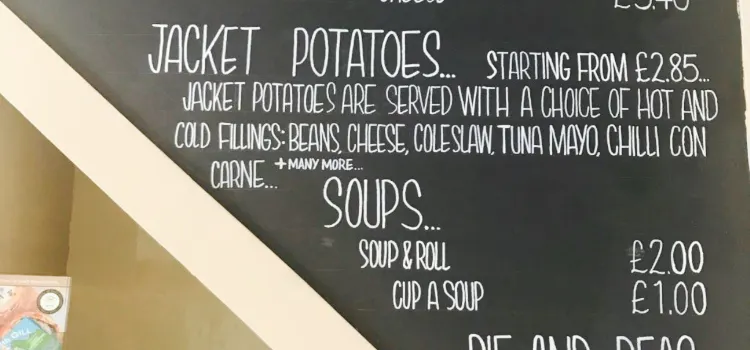 £3.40
JACKET POTATOES... STARTING FROM £2.85...
JACKET POTATOES ARE SERVED WITH A CHOICE OF HOT AND
COLD FILLINGS: BEANS, CHEESE, COLESLAW, TUNA MAYO, CHILLI CON
CARNE... + MANY MORE...
SOUPS...
SOUP & ROLL £2.00
CUP A SOUP £1.00
PIE AND PEAS